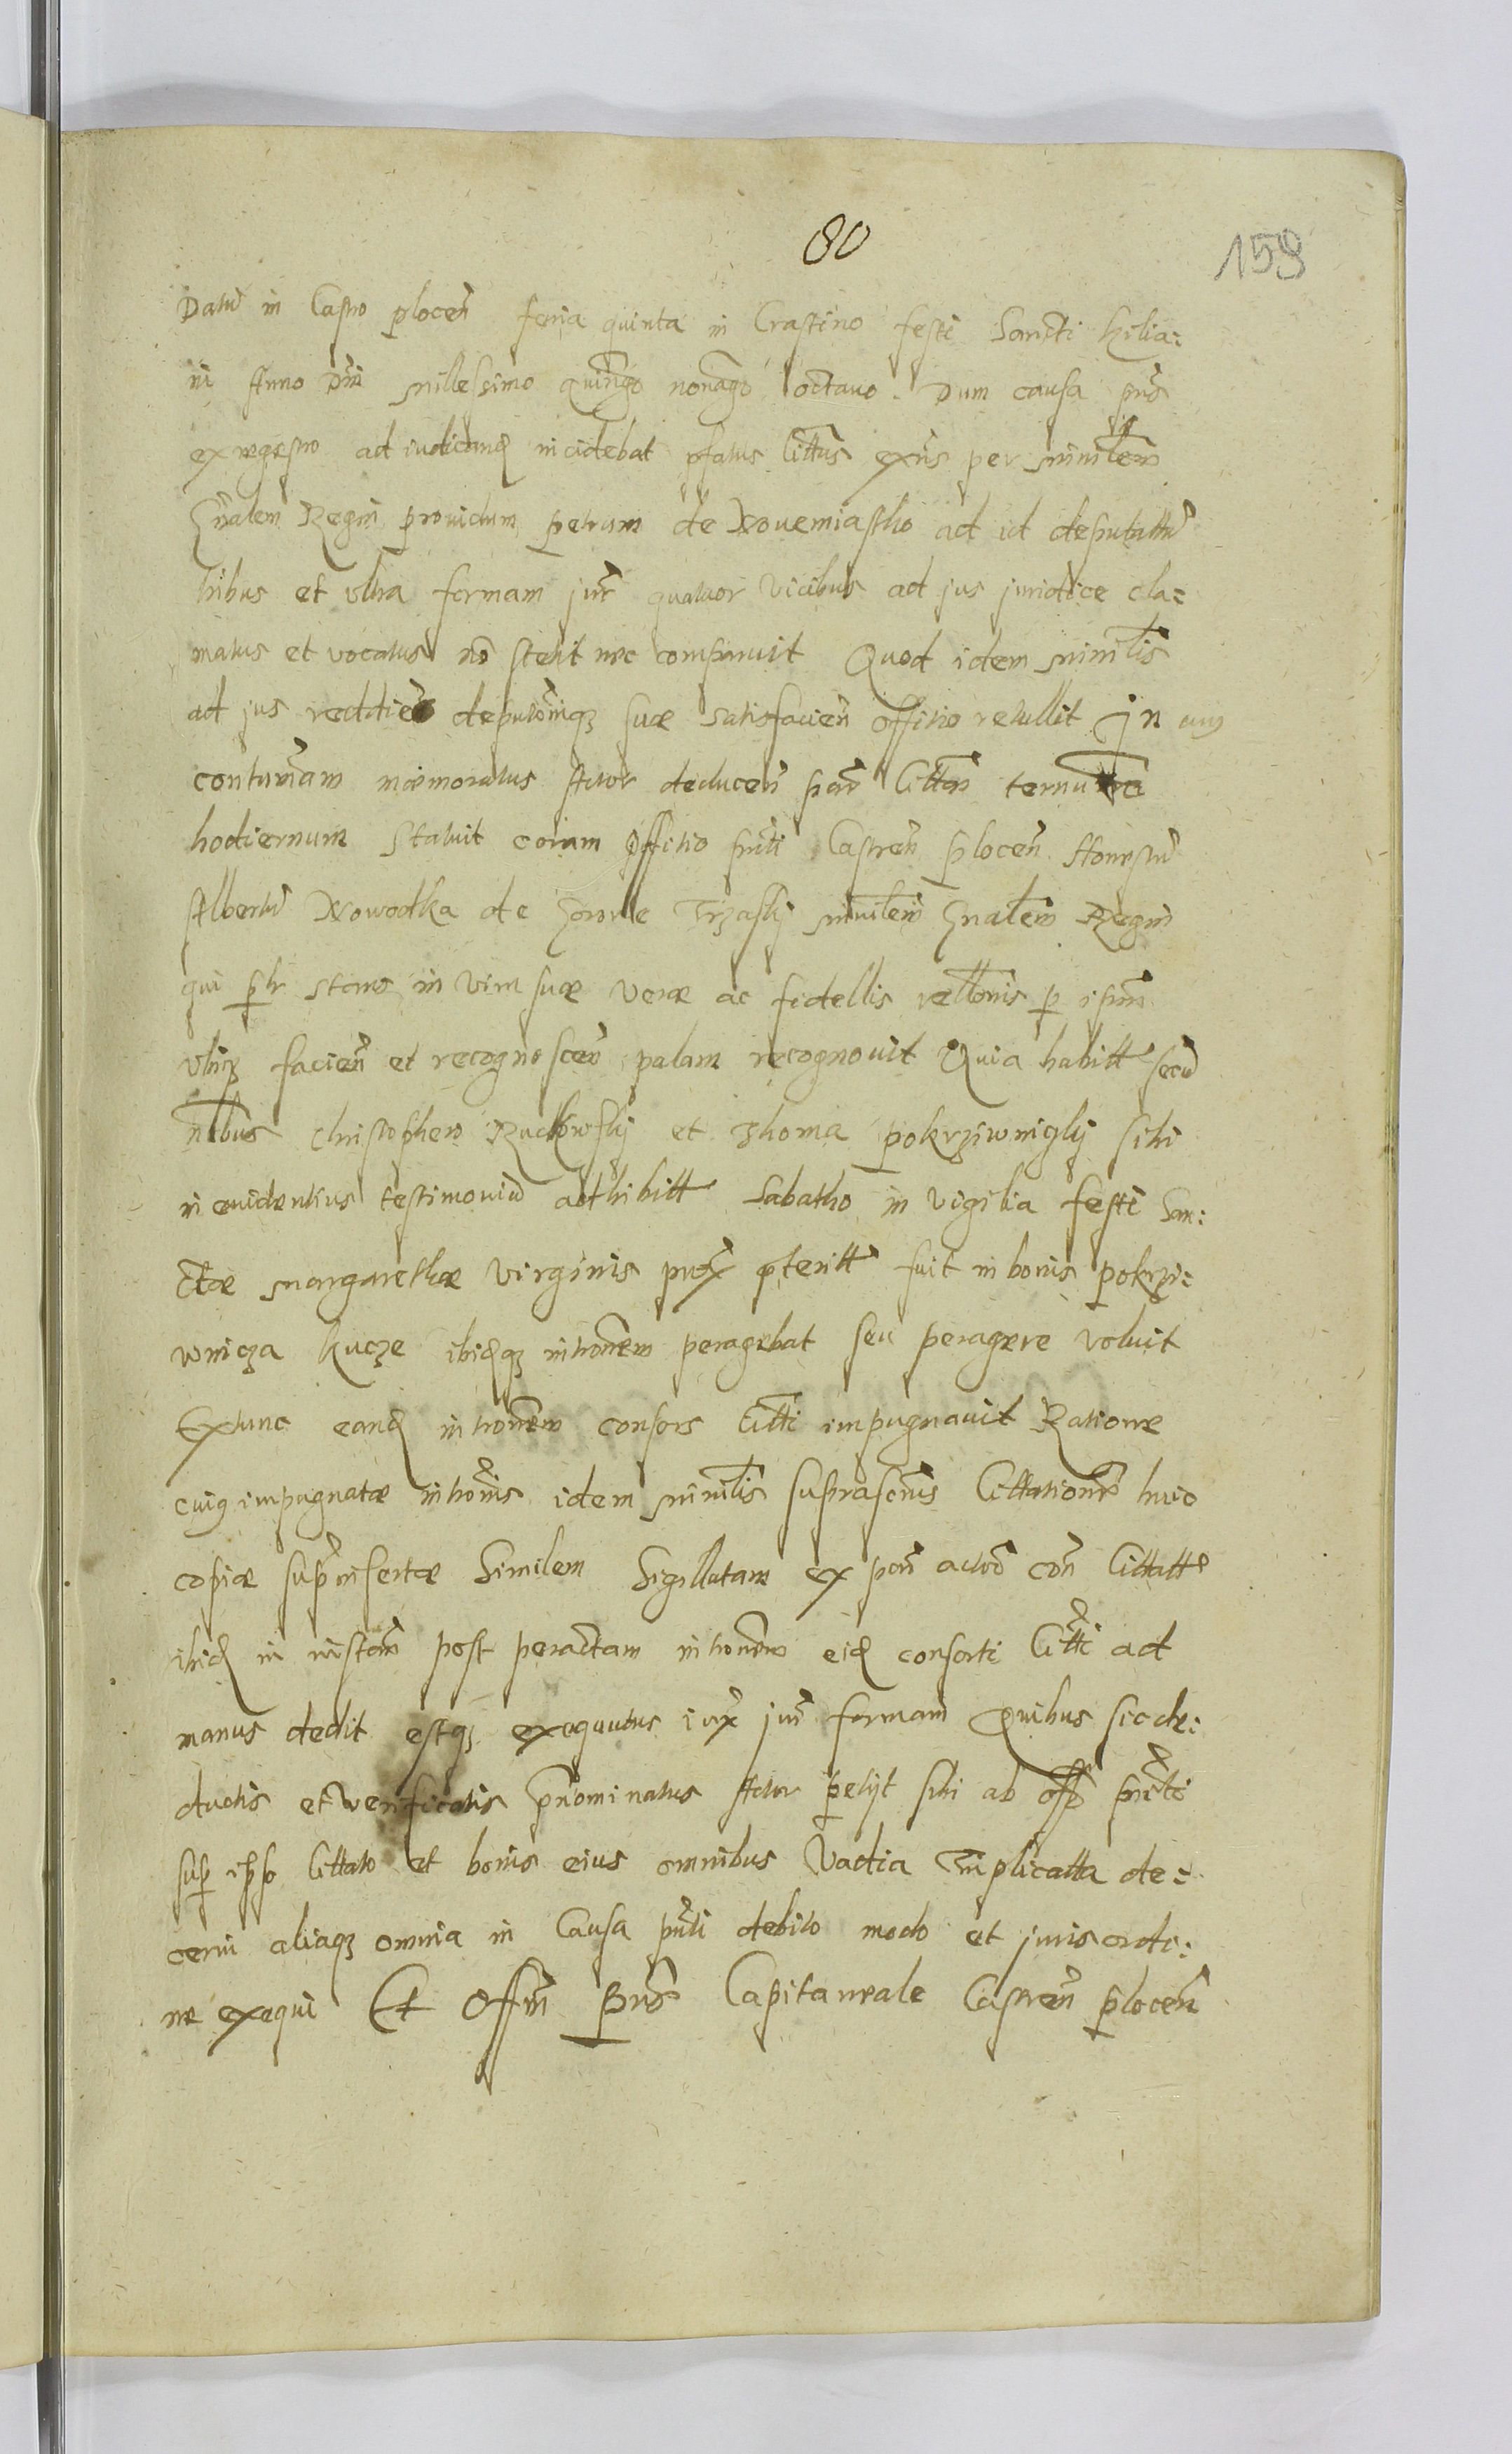 80
159
Datū in Castro plocen̄ feria quinta in Crastino festi Sancti Kilia:
ni Anno Dnī Millessimo quingō nonagō octavo. Dum causa pn̄s
ex regestro ad iudicand incidebat pfatus Cittus exn̄s per Minilem
Gn̄alem Regni providum petrum de Novemiastho ad id deputattū
tribus et vltra formam jur̄ quatuor vicibus ad jus juridice cla:
matus et vocatus nō stetit nec comparuit Quod idem Minilis
ad jus reddien̄ deputōniqꝫ suæ satisfacien̄ offitio retullit In cuius
contumām mæmoratus Actor deducen̄ hān̄ Cittōn̄ terminū
hodiernum Statuit coram Offitio pn̄ti Castren̄ plocen̄ Honestū
Albertū Nowodka de Gorvle Trzasky Minilem Gn̄alem Regni
qui pltr stans in vim suæ veræ ac fidellis rellōnis p ipsum
vbiqꝫ facien̄ et recognoscen̄ palam recognovit Quia habitt secū
nōbbus Christophero Ruckowsky et Thoma pokrziwnigky sibi
in euidentius testimoniū adhibitt Sabatho in vigilia festi San:
ctæ Margarethæ Virginis prox pteritt fuit in bonis pokrzi:
wnicza Kucze ibidqꝫ intrōnem peragebat seu peragere voluit
Extunc eand intrōnem consors Citti impugnavit Ratione
cuiꝯ impugnatæ intrōnis idem Minilis suprascriptus Cittationē huic
copiæ supr̄insertæ Similem Sigillatam ex pān̄ actō cōn̄ Cittatt
ibid in instān̄ post peractam intrōnem eid consorti Citti ad
manus dedit estqꝫ exequutus iuxt jur̄ formam Quibus sic de:
ductis et verificatis pn̄ominatus Actor petijt sibi ab offō pn̄ti
sup ipso Cittato et bonis eius omnibus Vadia triplicatta de:
cerni aliaqꝫ omnia in Causa pn̄ti debito modo et juris ordi:
ne exequi Et Offm̄ Pn̄s Capitaneale Castren̄ plocen̄